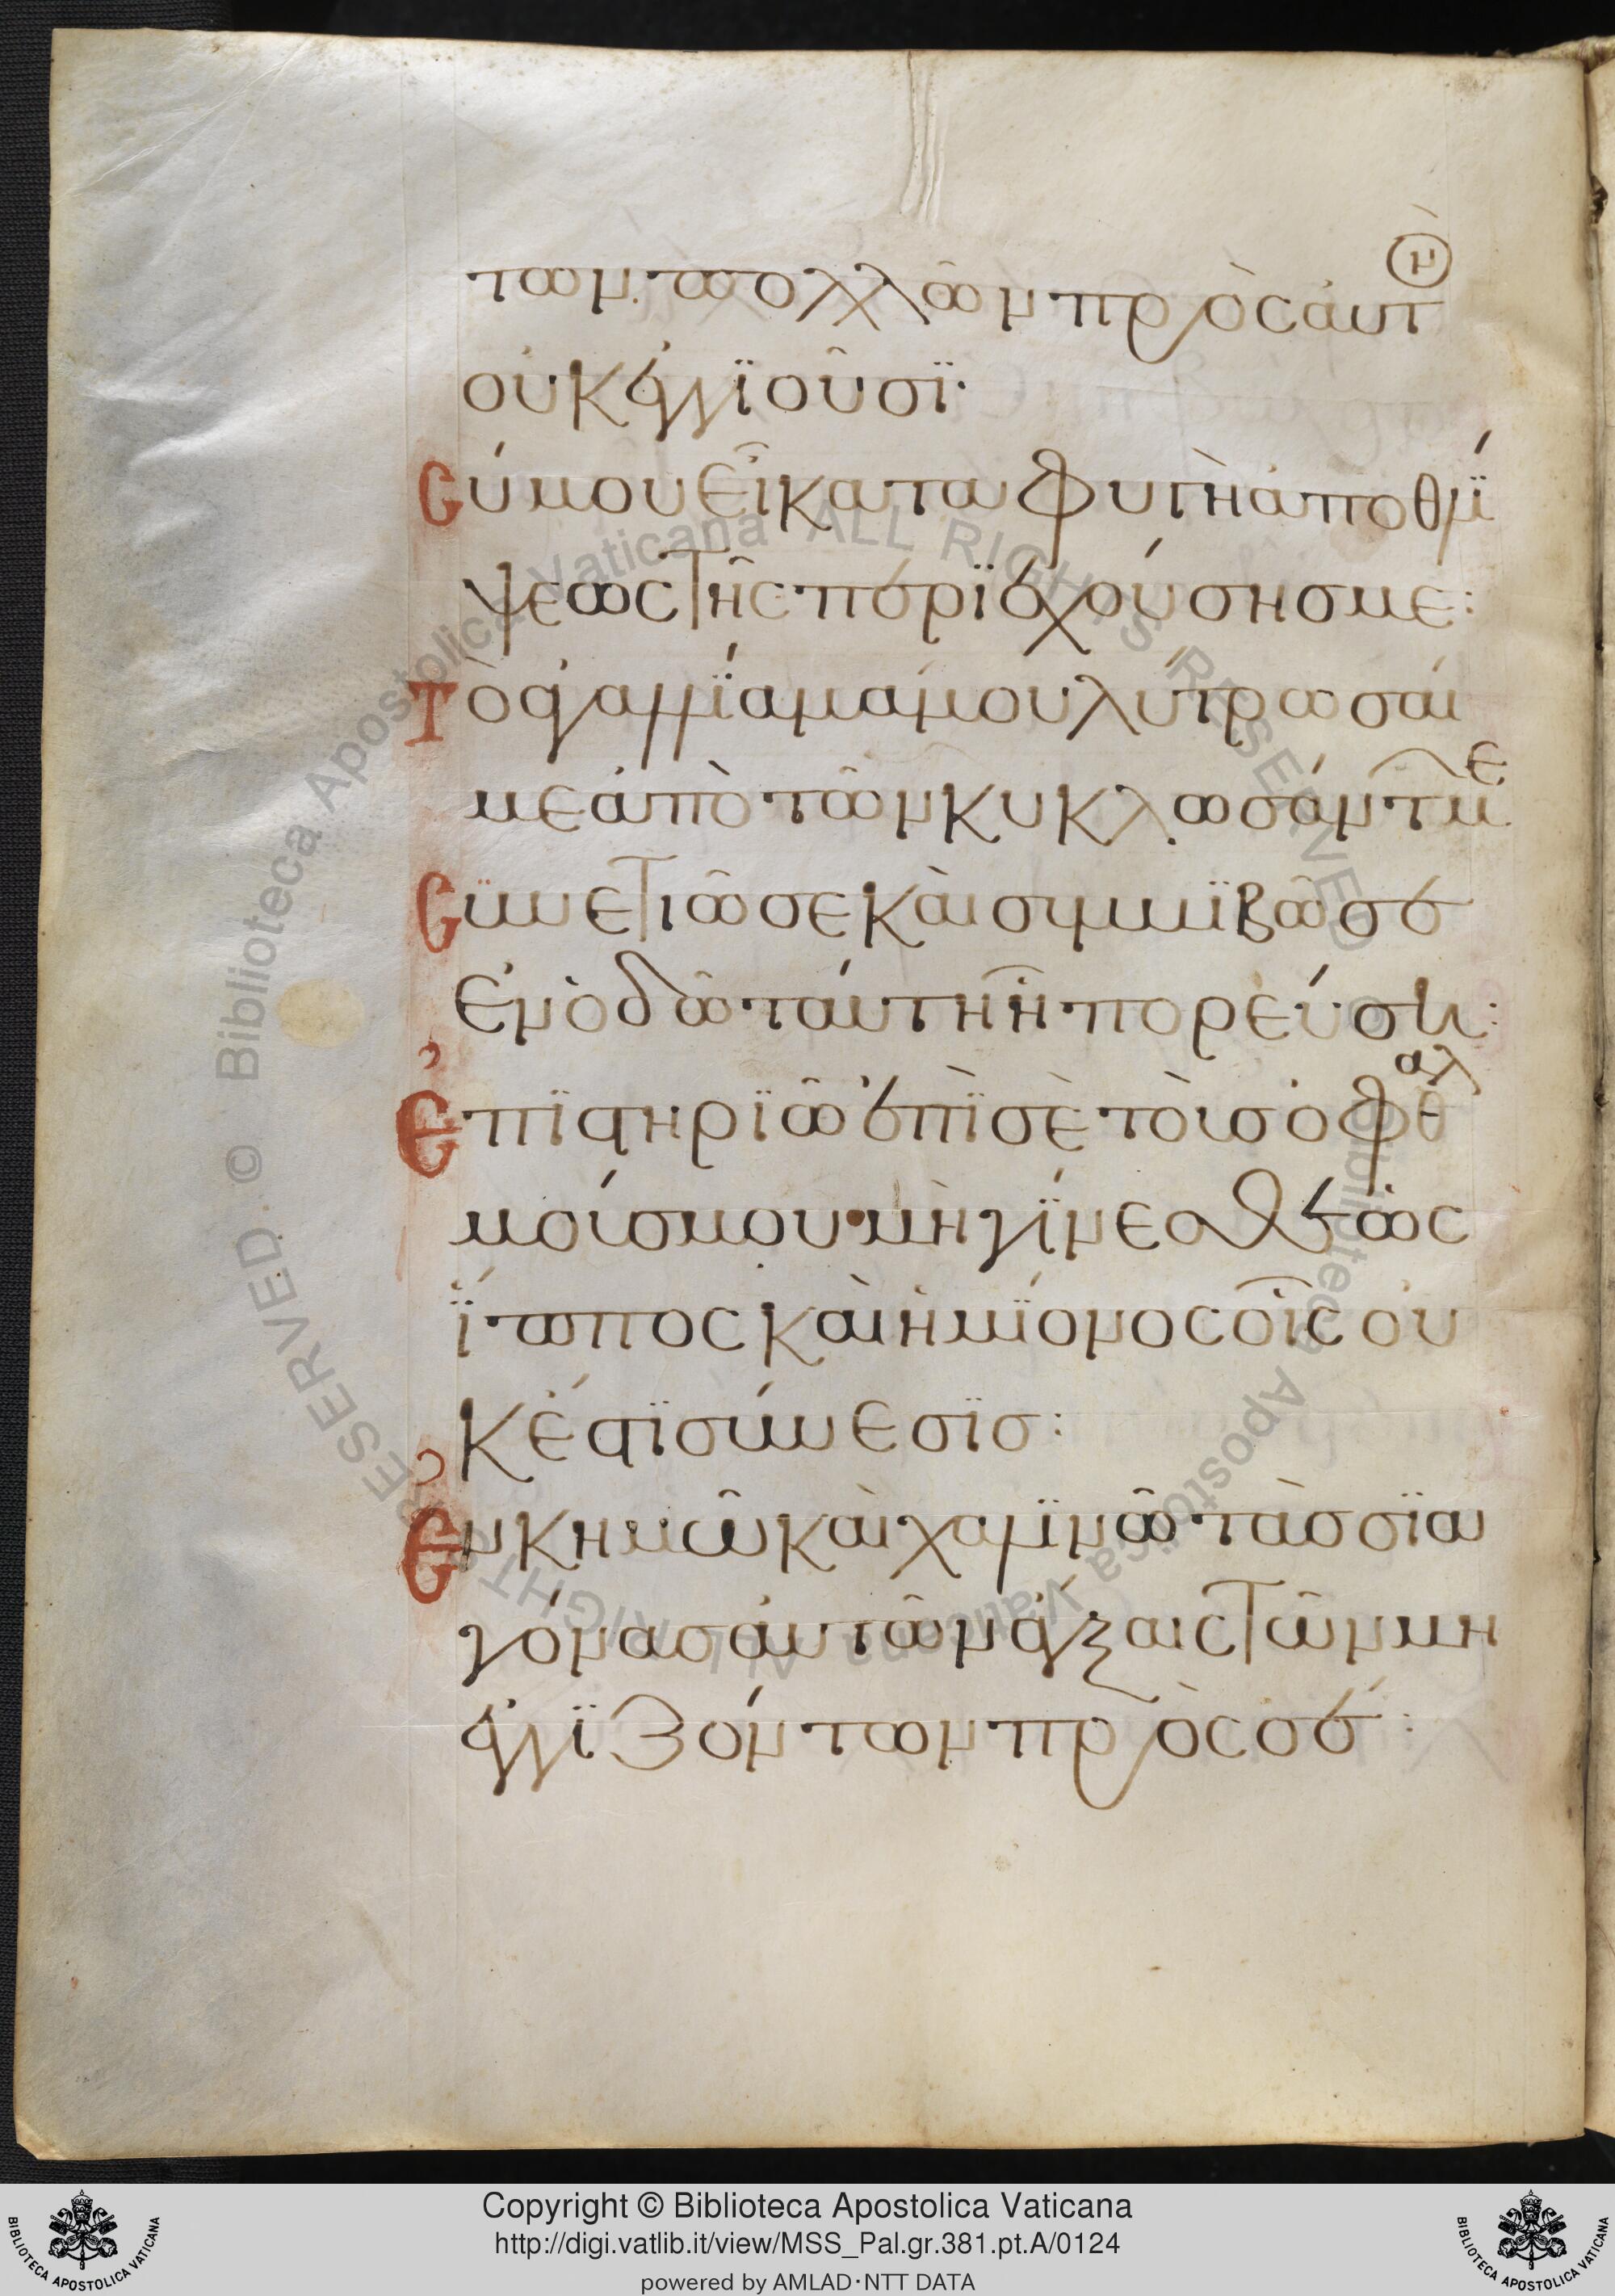 των πολλῶν πρὸς αὐτὸν
οὐκ ἐγγϊοῦσϊ·
Σύ μου εἶ καταφυγὴ ἀπὸ θλΐ
ψεως τῆς περϊεχούσησ με:
Τὸ ἀγαλλΐαμα μου λύτρωσαί
με ἀπὸ τῶν κυκλωσάντων με
Συνετιῶ σε καὶ συμβϊβῶ σε
ἐν ὁδῶ ταύτη ἧ πορεύση:
Ἐπϊστηρϊῶ ἐπΐ σὲ τοὺσ ὀφθαλ
μούσ μου· μὴ γΐνεσθε ὡς
ΐππος καὶ ἡμΐονος οἷς οὐ
κ ἔστϊ σύνεσϊσ:
Ἐν κημῶ καὶ χαλϊνῶ τὰσ σϊα
γόνασ αὐτῶν ἄγξαις τῶν μὴ
ἐγγϊζόντων πρὸς σέ:
Copyright © Biblioteca Apostolica Vaticana
http://digi.vatlib.it/view/MSS_Pal.gr.381.pt.A/0124
powered by AMLAD·NTT DATA
BIBLIOTECA APOSTOLICA VATICANA
BIBLIOTECA APOSTOLICA VATICANA
© Biblioteca Apostolica Vaticana ALL RIGHTS RESERVED
© Biblioteca Apostolica Vaticana ALL RIGHTS RESERVED